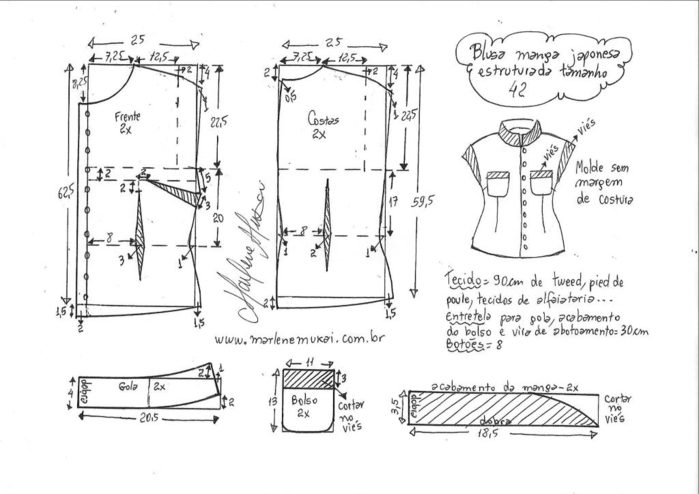 Blusa manga japonesa
estruturada tamanho
42
25
7,25
12,5
2
4
8,25
1
Frente
2x
22,5
62,5
2
2
2
5
3
20
8
3
1
1,5
2
1,5
25
7,25
12,5
2
2
4
0,5
1
Costas
2x
22,5
59,5
17
8
1
2
1
2
1,5
Marlene Mukai
viés
viés
viés
Molde sem
margem
de costura
Tecido = 90cm de tweed, pied de
poule, tecidos de alfaiataria...
Entretela para gola, acabamento
do bolso e vira de abotoamento = 30cm
Botões = 8
www.marlenemukai.com.br
4
dobra
Gola
2x
2
1
2
20,5
11
3
13
Bolso
2x
Cortar
no
viés
acabamento da manga - 2x
3,5
dobra
dobra
18,5
Cortar
no
viés